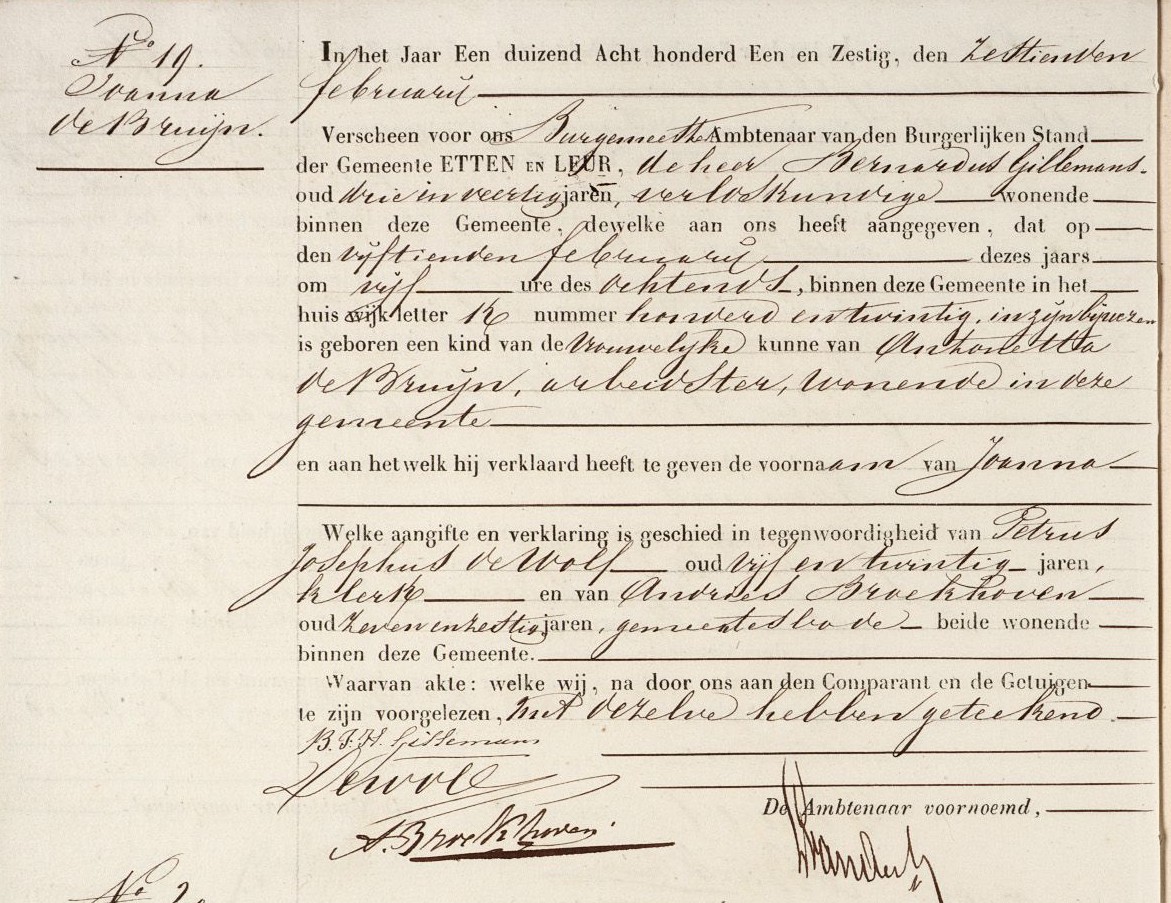 No 19.
Joanna
de Bruijn.
In het Jaar Een duizend Acht honderd Een en Zestig, den zestienden
februarij
Verscheen voor ons Burgemeester Ambtenaar van den Burgerlijken Stand
der Gemeente ETTEN EN LEUR, de heer Bernardus Gillemans.
oud drie in veertig jaren, verloskundige wonende
binnen deze Gemeente, dewelke aan ons heeft aangegeven, dat op
den vijftienden februarij dezes jaars
om vijf ure des ochtends, binnen deze Gemeente in het
huis wijk letter K nummer honderd en twintig, in zijn bijwezen
is geboren een kind van de vrouwelijke kunne van Antonetta
de Bruijn, arbeidster, wonende in deze
gemeente
en aan hetwelk hij verklaard heeft te geven de voornaam van Joanna
Welke aangifte en verklaring is geschied in tegenwoordigheid van Petrus
Josephus de Wolf oud vijf en twintig jaren,
klerk en van Andries Broekhoven
oud zeven en zestig jaren, gemeentesbode beide wonende
binnen deze Gemeente.
Waarvan akte: welke wij, na door ons aan den Comparant en de Getuigen
te zijn voorgelezen, met dezelve hebben geteekend.
B. F. H. Gillemans
Dewolf
De Ambtenaar voornoemd,
A. Broekhoven.
No 2